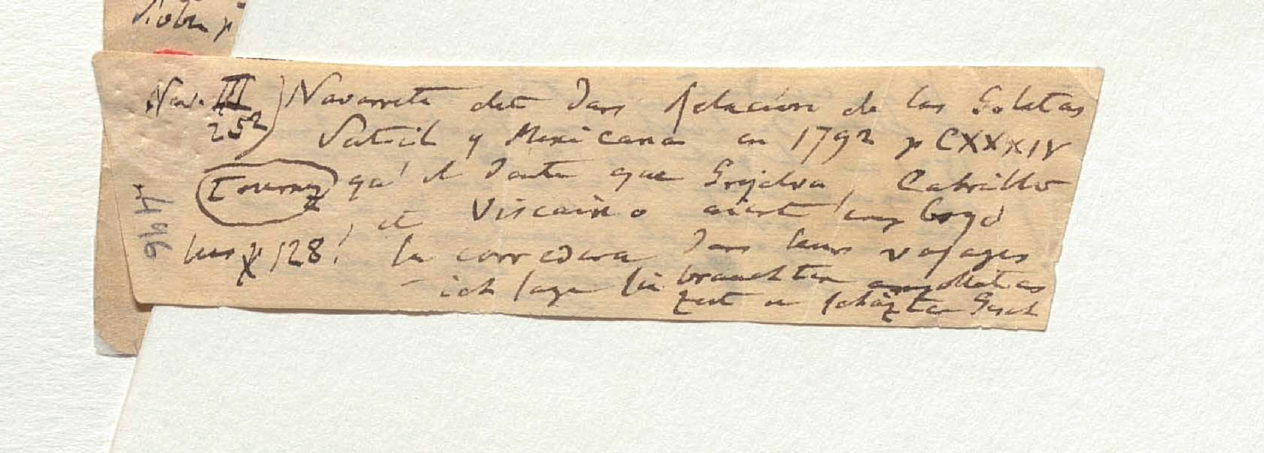 Nav. III) Navarrete dit dans Relacion de las Goletas
252) Sutil y Mexicana en 1792 p CXXXIV
qu'il doute que Grijalva, Cabrillo
et Viscaino aient employé
128! la corredera dans leurs voyages
ich sage sie brauchten
Zeit u schäzten Gesch
446